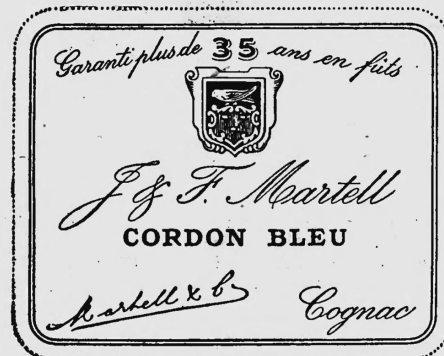 Garanti plus de 35 ans en fûts
J & F. Martell
CORDON BLEU
Martell & Co
Cognac